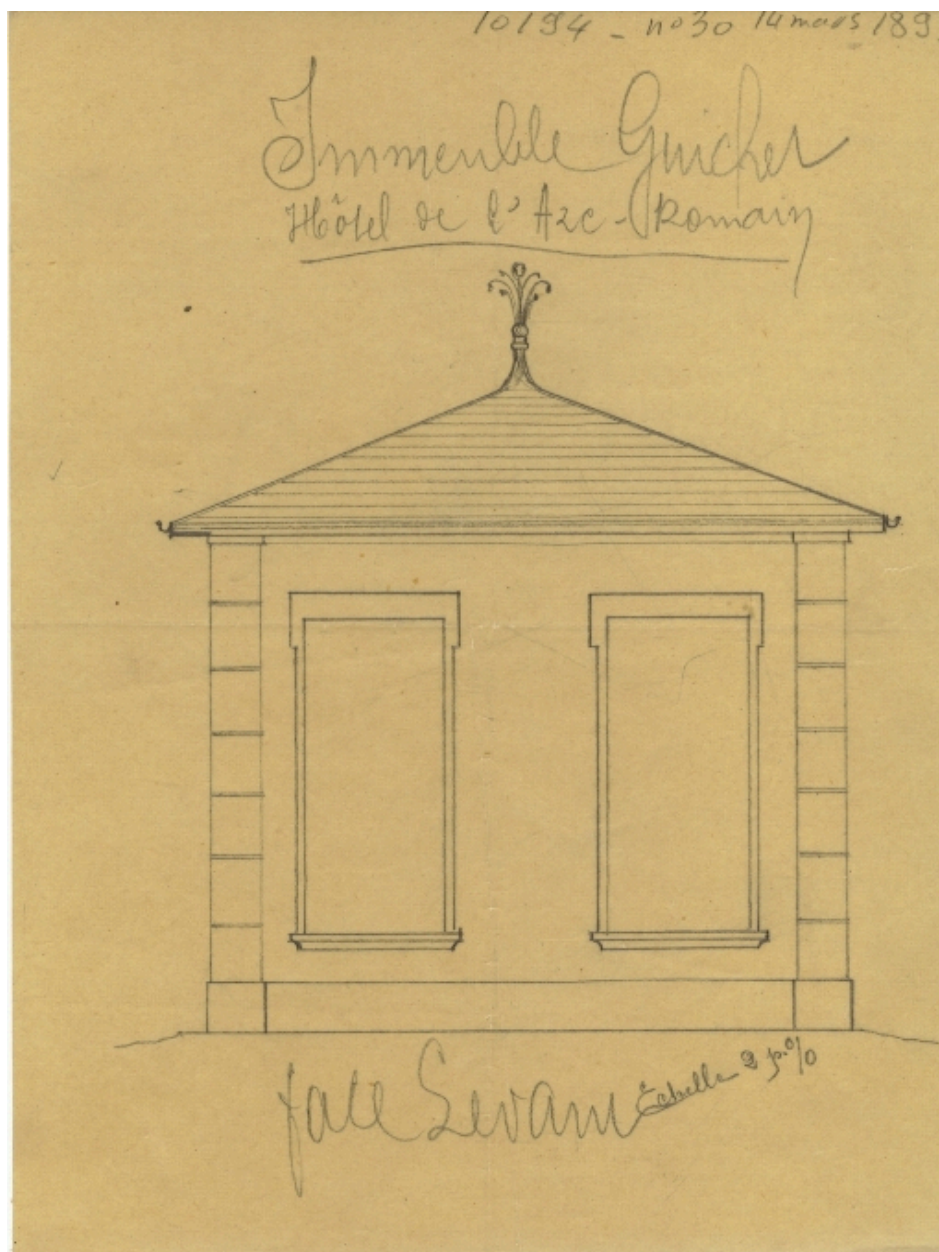 10194 - no 30 14 mars 189
Immeuble Guicher
Hôtel de l'Arc-Romain
face Levant Echelle 2 p. %